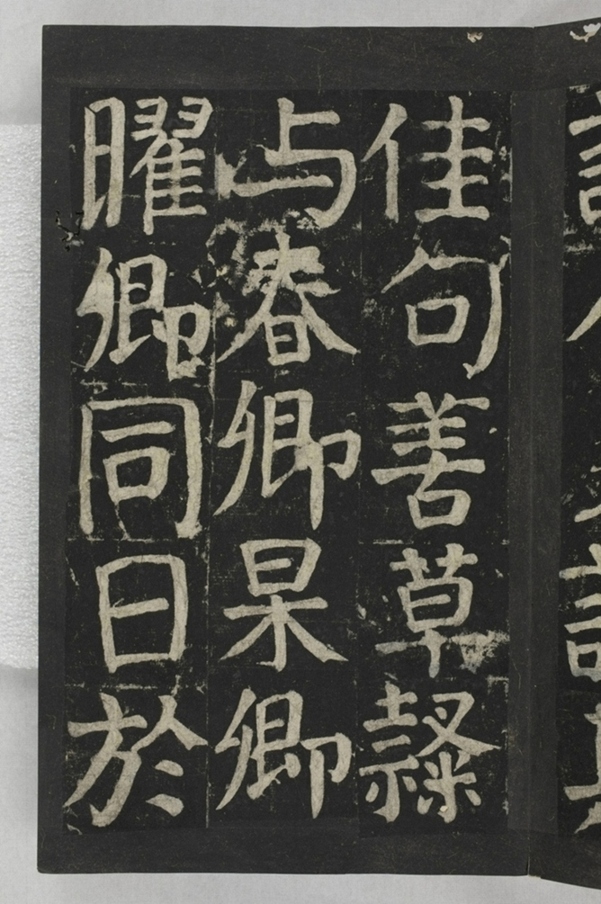 佳句善草隸
与春卿杲卿
曜卿同日於